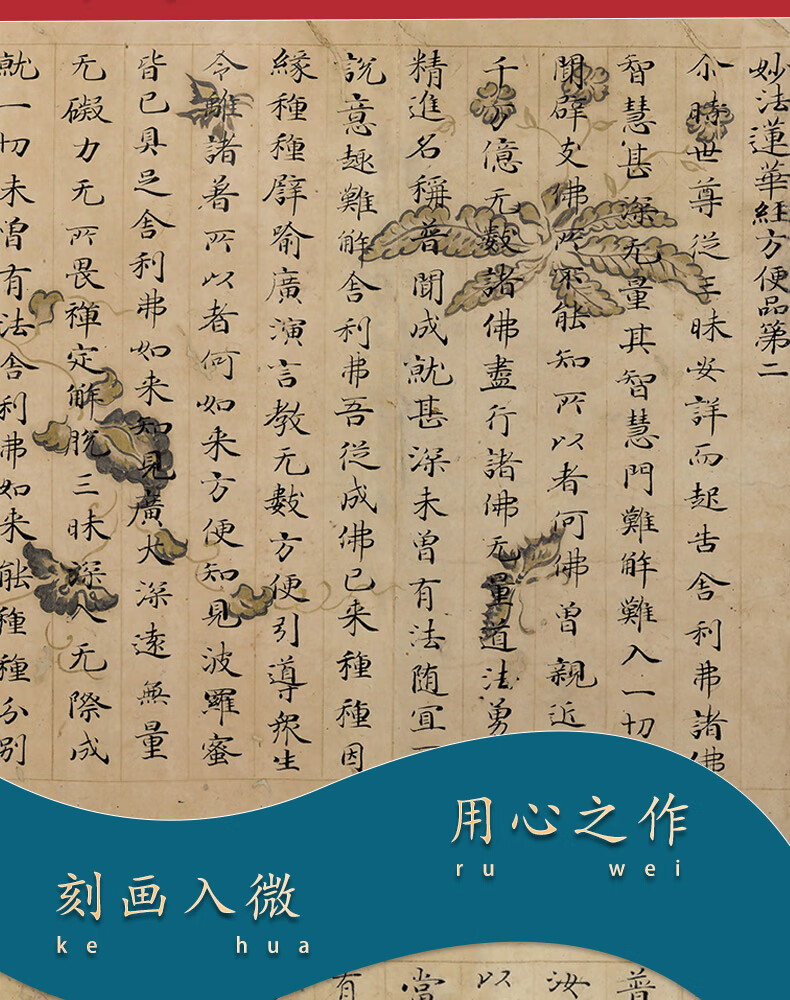 妙法蓮華経方便品第二
尒時世尊從三昧安詳而起告舍利弗諸佛
智慧甚深无量其智慧門難解難入一切
聞辟支佛所不能知所以者何佛曾親近
千万億无數諸佛盡行諸佛无量道法勇
精進名稱普聞成就甚深未曾有法随宜
說意趣難解舍利弗吾從成佛已来種種因
緣種種譬喻廣演言教无數方便引導衆生
令離諸著所以者何如来方便知見波羅蜜
皆已具足舍利弗如来知見廣大深遠無量
无礙力无所畏禪定解脫三昧深入无際成
就一切未曾有法舍利弗如来能種種分別
用心之作
ru wei
刻画入微
ke hua
普
汝
以
當
有